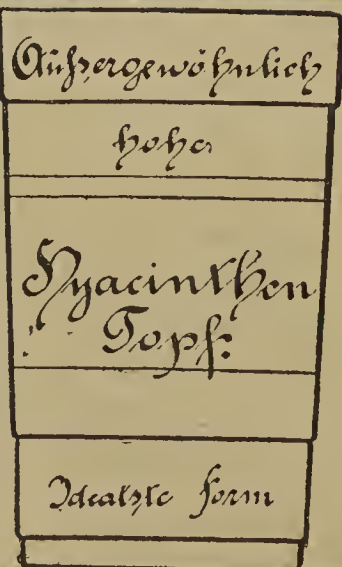 Außergewöhnlich
hoher
Hyacinthen
Topf.
Idealste Form